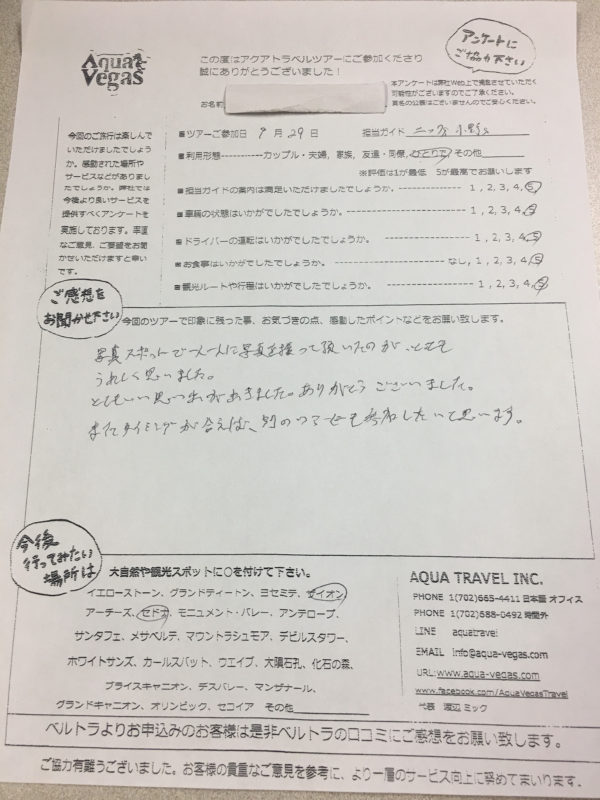 Aqua Vegas
この度はアクアトラベルツアーにご参加くださり
誠にありがとうございました！
アンケートに
ご協力下さい
本アンケートは弊社Web上で掲載させていただく
可能性がございますのでご了承ください。
実名の公表はございませんのでご安心ください。
お名前
今回のご旅行は楽しんで
いただけましたでしょう
か。感動された場所や
サービスなどがありまし
たでしょうか。弊社では
今後より良いサービスを
提供すべくアンケートを
実施しております。率直
なご意見、ご要望をお聞
かせいただけますと幸い
です。
■ツアーご参加日 9月 29日 担当ガイド 小野
■利用形態-----------カップル・夫婦, 家族, 友達・同僚, ひとりで, その他
※評価は1が最低 5が最高でお願いします
■担当ガイドの案内は満足いただけましたでしょうか。------------- 1, 2, 3, 4, 5
■車輌の状態はいかがでしたでしょうか。------------------------- 1, 2, 3, 4, 5
■ドライバーの運転はいかがでしたでしょうか。------------------- 1, 2, 3, 4, 5
■お食事はいかがでしたでしょうか。----------------------- なし, 1, 2, 3, 4, 5
■観光ルートや行程はいかがでしたでしょうか。------------------- 1, 2, 3, 4, 5
ご感想を
お聞かせ下さい
今回のツアーで印象に残った事、お気づきの点、感動したポイントなどをお願い致します。
写真スポットで一人一人に写真を撮って頂いたのが、とても
うれしく思いました。
とてもいい思い出ができました。ありがとうございました。
またタイミングが合えば、別のツアーにも参加したいと思います。
今後
行ってみたい
場所は
大自然や観光スポットに○を付けて下さい。
イエローストーン、グランドティートン、ヨセミテ、ザイオン
アーチーズ、セドナ、モニュメント・バレー、アンテロープ、
サンタフェ、メサベルテ、マウントラシュモア、デビルスタワー、
ホワイトサンズ、カールスバット、ウエイブ、大隕石孔、化石の森、
ブライスキャニオン、デスバレー、マンザナール、
グランドキャニオン、オリンピック、セコイア その他
AQUA TRAVEL INC.
PHONE 1(702)665-4411 日本語 オフィス
PHONE 1(702)588-0492 時間外
LINE aquatravel
EMAIL info@aqua-vegas.com
URL: www.aqua-vegas.com
www.facebook.com/AquaVegasTravel
代表 渡辺 ミック
ベルトラよりお申込みのお客様は是非ベルトラの口コミにご感想をお願い致します。
ご協力有難うございました。お客様の貴重なご意見を参考に、より一層のサービス向上に努めてまいります。